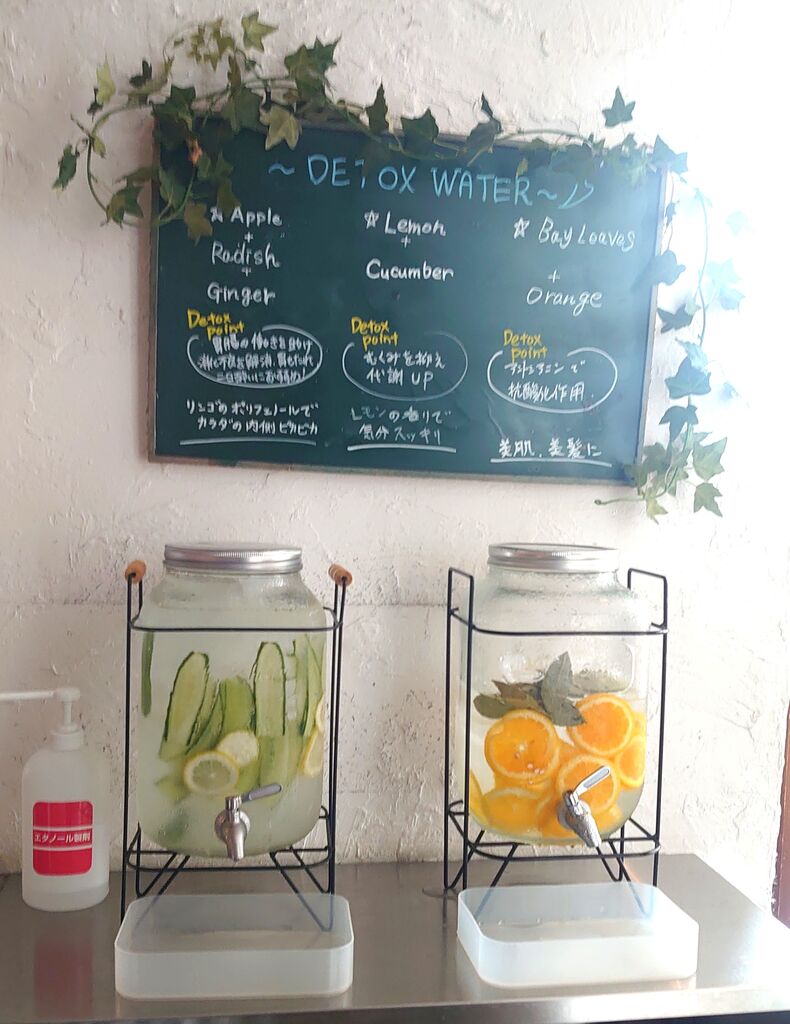 ~ DETOX WATER ~
☆ Apple
+
Radish
+
Ginger
Detox
point
胃腸の働きを助け
消化不良を解消 胃もたれ
二日酔いにお勧め!
リンゴのポリフェノールで
カラダの内側ピカピカ
☆ Lemon
+
Cucumber
Detox
point
むくみを抑え
代謝 UP
レモンの香りで
気分スッキリ
☆ Bay Leaves
+
Orange
Detox
point
で
抗酸化作用
美肌、美髪に
エタノール製剤